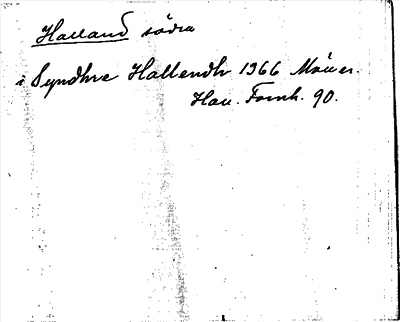 Halland södra
i Syndhre Hallendh 1366 Möller.
Hall. Fornh. 90.